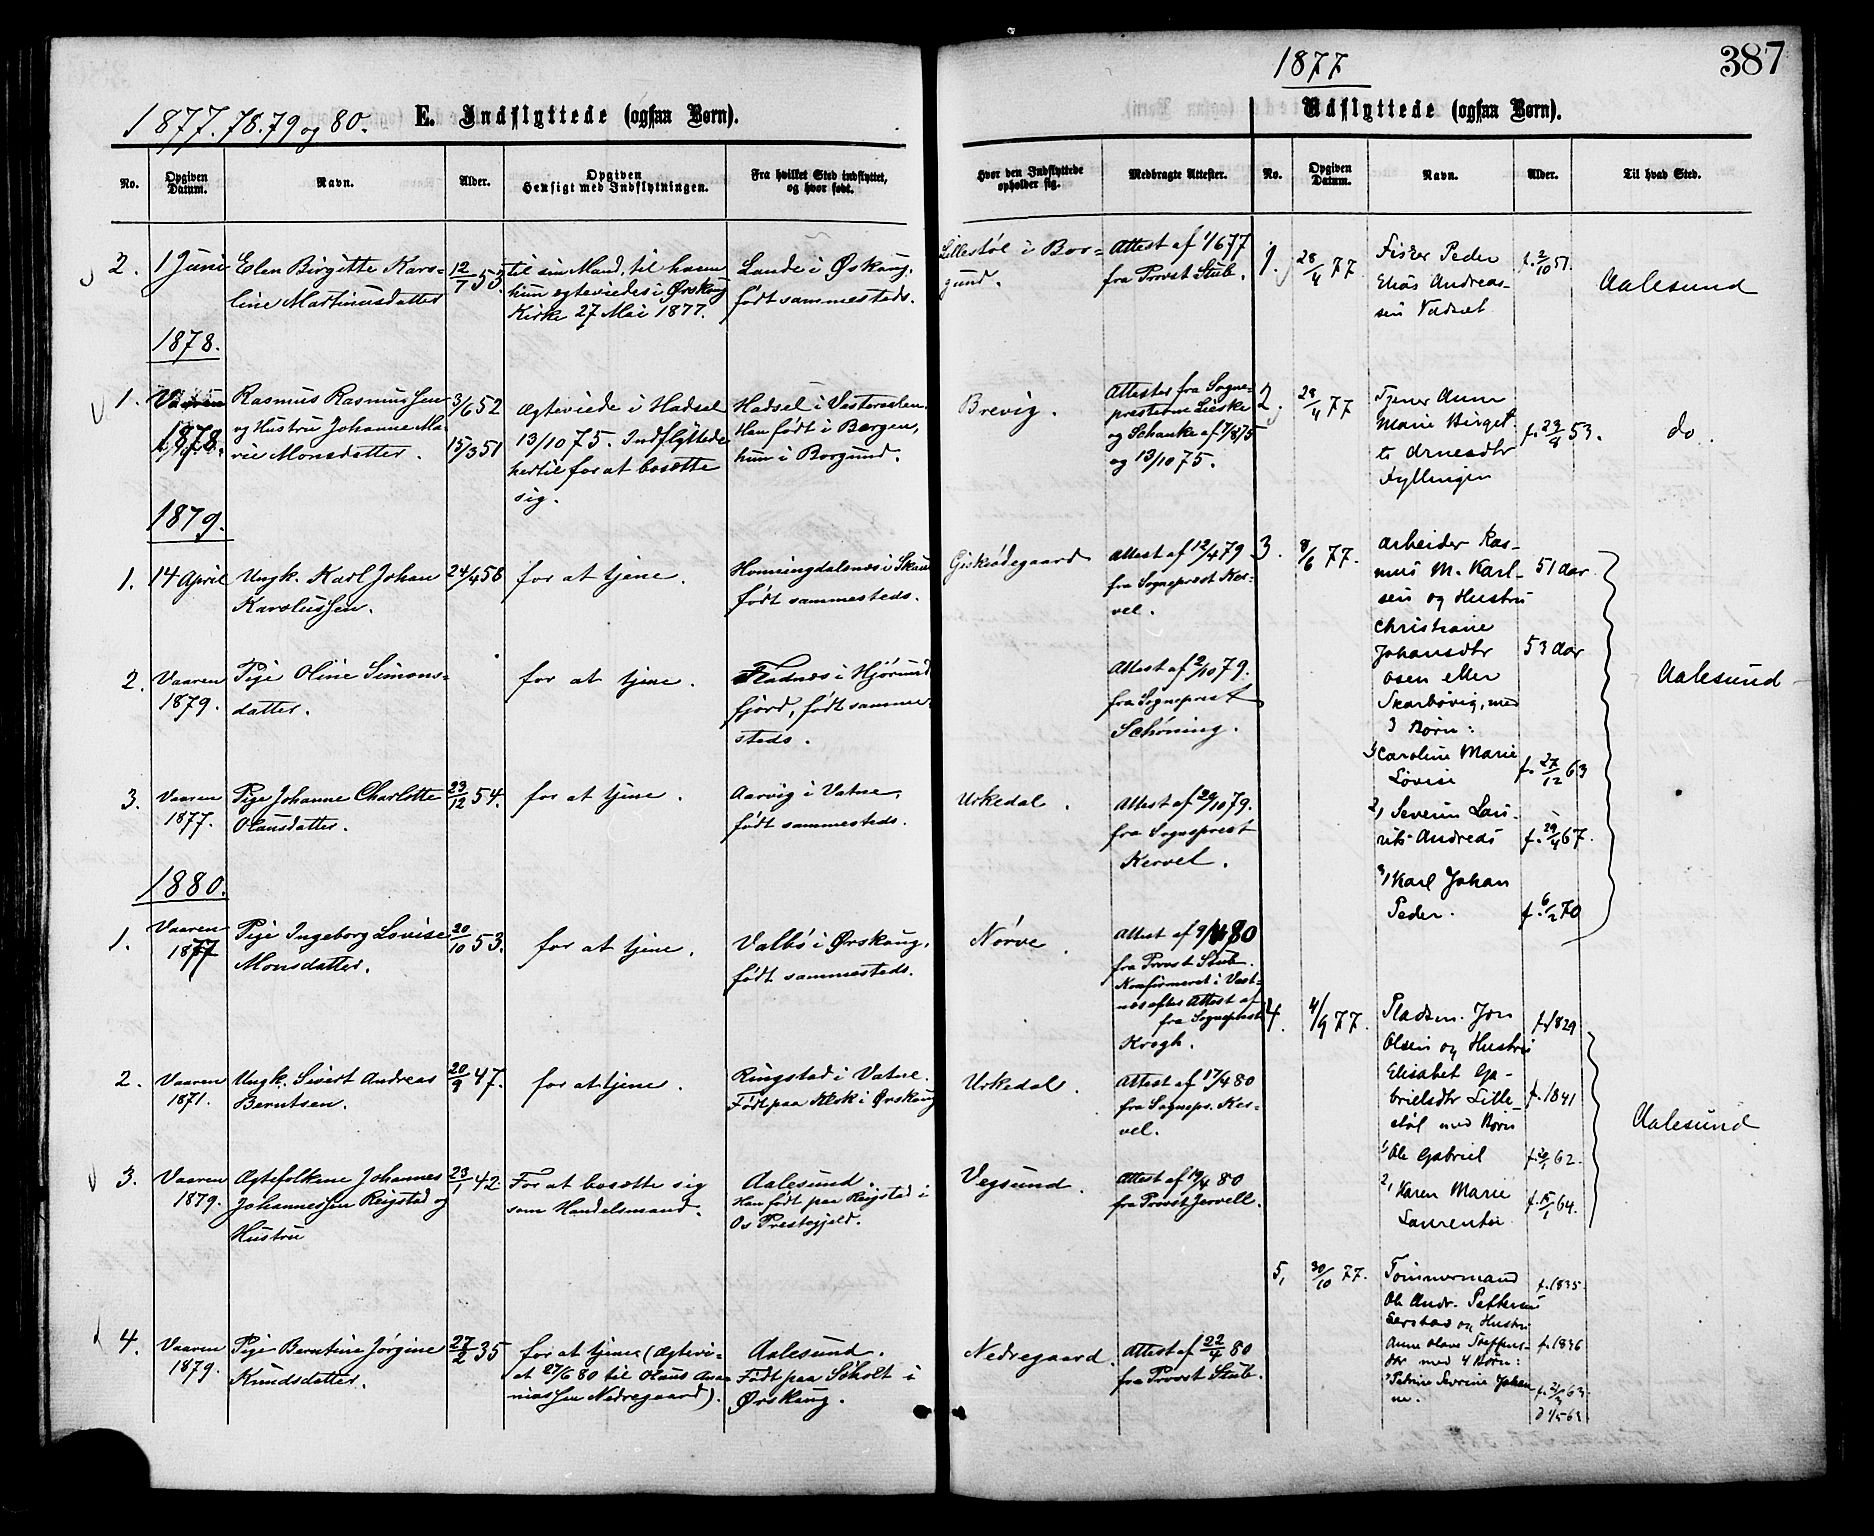 1877
387
1877.78.79 og 80.
E. Indflyttede (ogsaa Børn).
Udflyttede (ogsaa Børn).
No.
Opgiven Datum.
Navn.
Alder.
Opgiven Hensigt med Indflytningen.
Fra hvilket Sted indflyttet, og hvor født.
Hvor den Indflyttede opholder sig.
Medbragte Attester.
No.
Opgiven Datum.
Navn.
Alder.
Til hvad Sted.
2. 1 Juni
Elen Birgitte Karo-
line Martinusdatter
12/7 53.
til sin Mand, til hvem
hun egteviedes i Ørskoug
Kirke 27 Mai 1877.
Lande i Ørskoug,
født sammesteds.
Lillestøl i Bor-
gund.
Attest af 1/6 77
fra Provst Stub.
1878.
1. Vaaren
1878.
Rasmus Rasmussen
og Hustru Johanne Ma-
rie Monsdatter.
3/6 52
15/3 51
Ægteviede i Hadsel
13/10 75. Indflyttede
hertil for at bosætte
sig.
Hadsel i Vesteraalen.
Han født i Bergen,
hun i Borgund.
Brevig.
Attester fra Sogne-
presterne Lieske
og Schanke af 7/8 75
og 13/10 75.
1879.
1. 14 April
Ungk. Karl Johan
Karolussen.
24/4 58
for at tjene.
Horningdalsnes i Skau
født sammesteds.
Giskeødegaard
Attest af 12/4 79
fra Sogneprest Ker-
vel.
2. Vaaren
1879.
Pige Oline Simons-
datter.
for at tjene.
Fladnes i Hjørund
fjord, født samme-
steds.
Attest af 2/10 79.
fra Sogneprest
Schøning.
3. Vaaren
1877.
Pige Johanne Charlotte
Olausdatter.
23/12 54.
for at tjene.
Aarvig i Vatne,
født sammesteds.
Urkedal.
Attest af 20/10 79.
fra Sogneprest
Kervel.
1880.
1. Vaaren
1877
Pige Ingeborg Lovise
Monsdatter.
20/10 53.
for at tjene.
Valbø i Ørskoug,
født sammesteds.
Nørve.
Attest af 9/4 80
fra Provst Stub.
Konfirmeret i Vest-
nes efter Attest af
fra Sogneprest
Krogh.
2. Vaaren
1871.
Ungk. Sivert Andreas
Berntsen.
20/9 47.
for at tjene.
Ringstad i Vatne.
Født paa Klok i Ørskoug
Urkedal.
Attest af 17/4 80
fra Sognepr. Ker-
vel.
3. Vaaren
1879.
Ægtefolkene Johannes
Johannessen Reigstad og
Hustru
23/1 42
For at bosætte sig
som Handelsmand.
Aalesund.
Han født paa Reigstad i
Os Prestegjeld.
Vegsund.
Attest af 19/4 80
fra Provst Jervell.
4. Vaaren
1879.
Pige Berntine Jørgine
Knudsdatter.
27/2 35
for at tjene (Ægtevi-
et 27/6 80 til Olaus Ana-
niassen Nedregaard).
Aalesund.
Født paa Scholt i
Ørskoug.
Nedregaard.
Attest af 22/4 80
fra Provst Stub.
1. 28/4 77.
Fisker Peder
Elias Andreas-
sen Vedset
f. 2/10 51.
Aalesund
2. 28/4 77
Tjener Anne
Marie Birget-
te Arnesdtr
Fyllingen
f. 23/4 53.
do.
3. 8/6 77.
Arbeider Ras-
mus M. Karl-
sen og Hustru
Christiane
Johansdtr
Osen eller
Skarbøvig, med
3 Børn:
51 aar
53 aar
1, Caroline Marie
Lovise
f. 27/12 63
2, Severin Lau-
rits Andreas
f. 29/4 67.
3, Karl Johan
Peder.
f. 6/2 70
Aalesund
4. 4/9 77.
Pladsm. Jon
Olsen og Hustru
Elisabet Ga-
brielsdtr Lille-
støl med Børn
f. 1829
f. 1841
1, Ole Gabriel f. 20/1 62.
2, Karen Marie
Laurentse f. 15/1 64.
Aalesund
5, 30/10 77.
Tømmermand
Ole Andr. Pettersen
og Hustru
f. 1835
Anne Olave Steffens-
dtr med 4 Børn: f. 1836
1, Petrine Severine Johan-
ne. f. 21/3 63